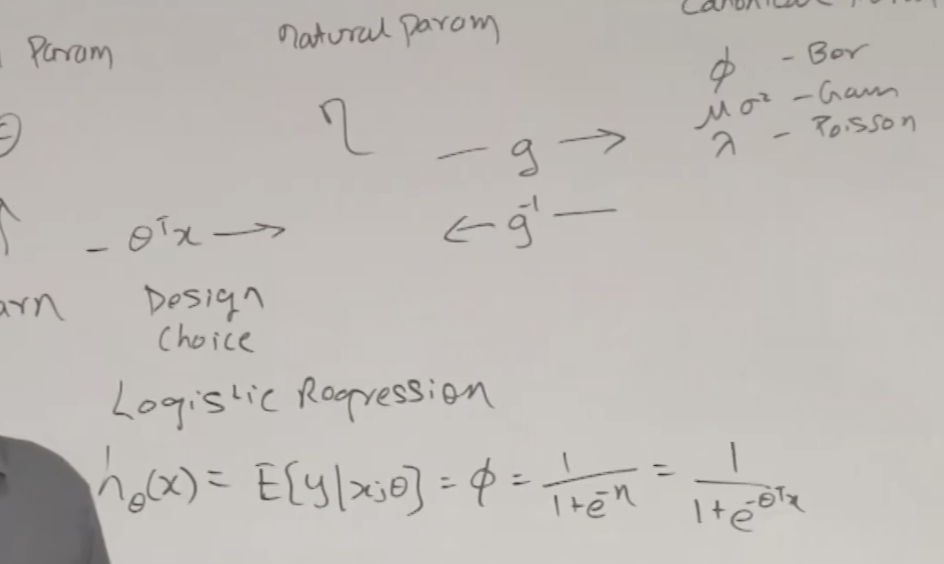 Param
natural param
η
— g →
φ - Ber
μ σ² - Gaus
λ - Poisson
- θᵀx →
← g⁻¹ —
Design
Choice
Logistic Regression
h_θ(x) = E[y|x;θ] = φ = 1/(1+e^-η) = 1/(1+e^-θᵀx)